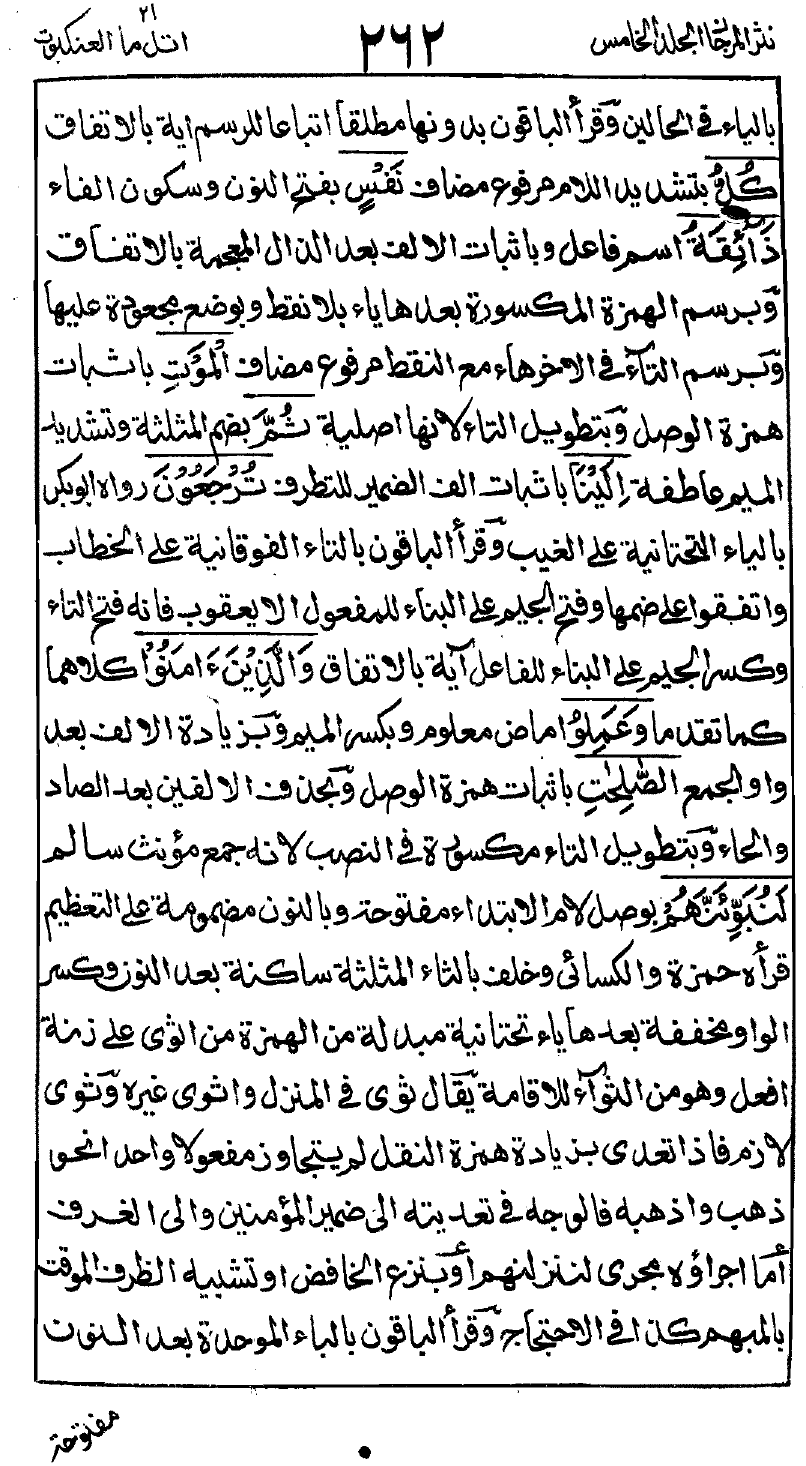 نثر المرجان الجلد الخامس
٢٦٢
٢١
اتل ما العنكبوت
بالياء فى الحالين وقرأ الباقون بدونها مطلقا اتباعا للرسم اية بالاتفاق
كُلُّ بتشديد اللام مرفوع مضاف نَفْسٍ بفتح النون وسكون الفاء
ذَائِقَةُ اسم فاعل وباثبات الالف بعد الذال المعجمة بالاتفاق
وبرسم الهمزة المكسورة بعدها ياء بلا نقط وبوضع مجعودة عليها
وبرسم التآء فى الاخر هاء مع النقط مرفوع مضاف الْمَوْتِ باثبات
همزة الوصل وبتطويل التاء لانها اصلية ثُمَّ بضم المثلثة وتشديد
الميم عاطفة اِلَيْنَا باثبات الف الضمير للتطرف تُرْجَعُوْنَ رواه ابوبكر
بالياء التحتانية على الغيب وقرأ الباقون بالتاء الفوقانية على الخطاب
واتفقوا على ضمها وفتح الجيم على البناء للمفعول الا يعقوب فانه فتح التاء
وكسر الجيم على البناء للفاعل آية بالاتفاق وَالَّذِيْنَ ءَامَنُوْا كلاهما
كما تقدما وَعَمِلُوْا ماض معلوم وبكسر الميم وبزيادة الالف بعد
واو الجمع الصّٰلِحٰتِ باثبات همزة الوصل وبحذف الالفين بعد الصاد
والحاء وبتطويل التاء مكسورة فى النصب لانه جمع مؤنث سالم
لَنُبَوِّئَنَّهُمْ بوصل لام الابتداء مفتوحة وبالنون مضمومة على التعظيم
قرأه حمزة والكسائى وخلف بالثاء المثلثة ساكنة بعد النون وكسر
الواو مخففة بعدها ياء تحتانية مبدلة من الهمزة من اثوى على زنة
افعل وهو من الثوآء للاقامة يقال ثوى فى المنزل واثوى غيره وثوى
لازم فاذا تعدى بزيادة همزة النقل لم يتجاوز مفعولا واحدا نحو
ذهب واذهبه فالوجه فى تعديته الى ضمير المؤمنين والى الغرف
أما اجراؤه مجرى لننزلنهم أو بنزع الخافض او تشبيه الظرف الموقت
بالمبهم كذا فى الاحتجاج وقرأ الباقون بالباء الموحدة بعد النون
مفتوحة